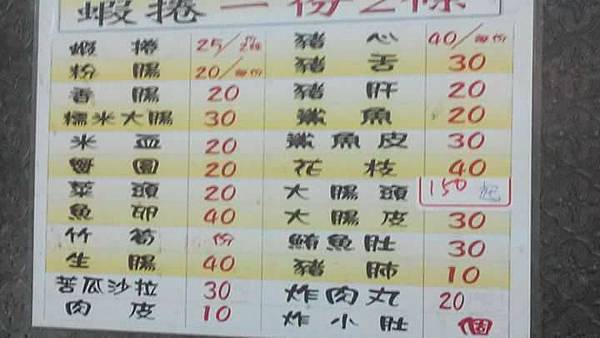 蝦捲一份2條
蝦捲 25/
粉腸 20/每份
香腸 20
糯米大腸 30
米血 20
蟹圓 20
菜頭 20
魚卵 40
竹筍 份
生腸 40
苦瓜沙拉 30
肉皮 10
豬心 40/每份
豬舌 30
豬肝 20
鯊魚 20
鯊魚皮 30
花枝 40
大腸頭 150起
大腸皮 30
鮪魚肚 30
豬肺 10
炸肉丸 20
炸小肚 個